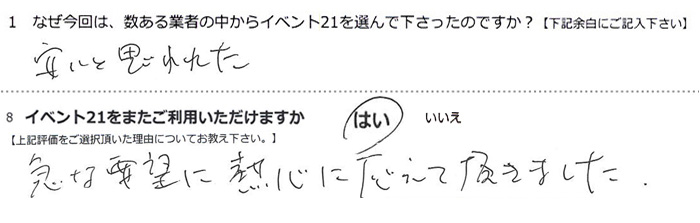 1 なぜ今回は、数ある業者の中からイベント21を選んで下さったのですか？【下記余白にご記入下さい】
安いと思われた
8 イベント21をまたご利用いただけますか はい いいえ
【上記評価をご選択頂いた理由についてお教え下さい。】
急な要望に熱心に応えて頂きました.